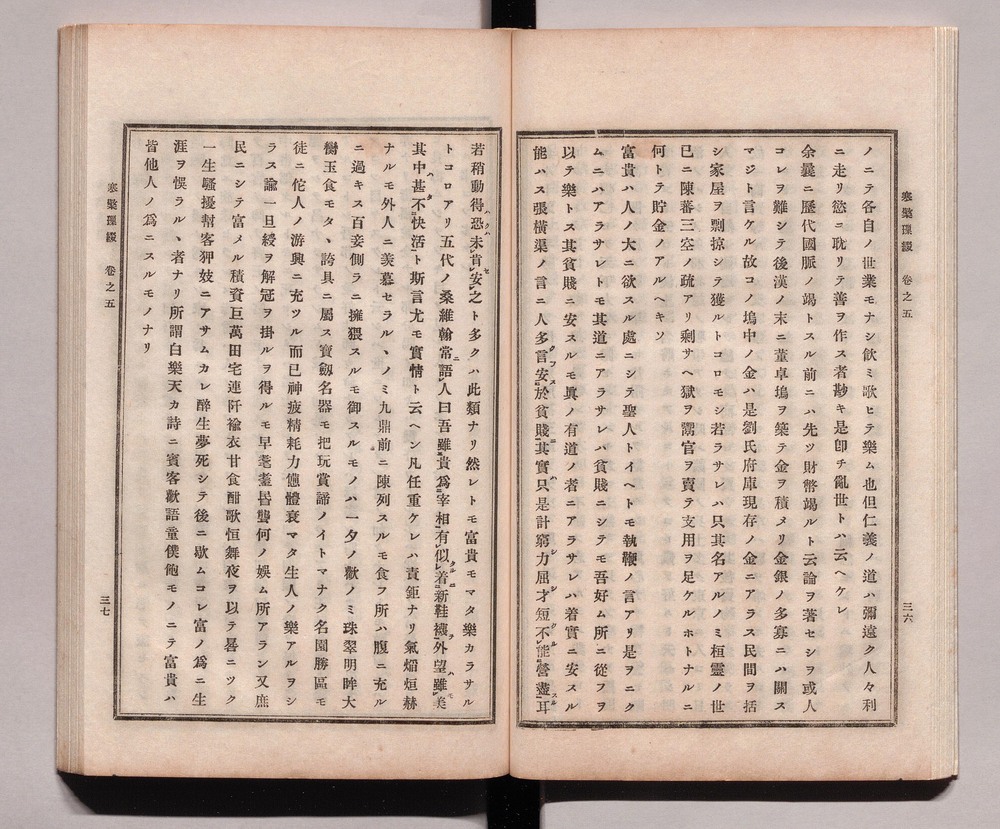 寒檠璅綴 卷之五
三六
ノニテ各自ノ世業モナシ飮ミ歌ヒテ樂ム也但仁義ノ道ハ彌遠ク人々利
ニ走リ慾ニ耽リテ善ヲ作ス者尠キ是卽チ亂世トハ云ヘケレ
余曩ニ歷代國脈ノ竭トスル前ニハ先ツ財幣竭ルト云論ヲ著セシヲ或人
コレヲ難シテ後漢ノ末ニ董卓塢ヲ築テ金ヲ積メリ金銀ノ多寡ニハ關ス
マジト言ケル故コノ塢中ノ金ハ是劉氏府庫現存ノ金ニアラス民間ヲ括
シ家屋ヲ剽掠シテ獲ルトコロモシ若ラサレハ只其名アルノミ桓靈ノ世
已ニ陳蕃三空ノ疏アリ剩サヘ獄ヲ鬻官ヲ賣テ支用ヲ足ケルホトナルニ
何トテ貯金ノアルヘキソ
富貴ハ人ノ大ニ欲スル處ニシテ聖人トイヘトモ執鞭ノ言アリ是ヲニク
ムニハアラサレトモ其道ニアラサレハ貧賤ニシテモ吾好ム所ニ從フヲ
以テ樂トス其貧賤ニ安スルモ眞ノ有道ノ者ニアラサレハ着實ニ安スル
能ハス張橫渠ノ言ニ人多言安於貧賤其實只是計窮力屈才短不能營畫耳
若稍動得恐未肯安之ト多クハ此類ナリ然レトモ富貴モマタ樂カラサル
トコロアリ五代ノ桑維翰常語人曰吾雖貴爲宰相有似着新鞋襪外望雖美
其中甚不快活ト斯言尤モ實情ト云ヘシ凡任重ケレハ責鉅ナリ氣焰烜赫
ナルモ外人ニ羨慕セラルヽノミ九鼎前ニ陳列スルモ食フ所ハ腹ニ充ル
ニ過キス百妾側ラニ擁猥スルモ御スルモノハ一夕ノ歡ノミ珠翠明眸大
櫥玉食モタヽ誇具ニ屬ス寶劔名器モ把玩賞諦ノイトマナク名園勝區モ
徒ニ佗人ノ游興ニ充ツル而已神疲精耗力憊體衰マタ生人ノ樂アルヲシ
ラス諭一旦綬ヲ解冠ヲ掛ルヲ得ルモ早耄耋昬聾何ノ娛ム所アラン又庶
民ニシテ富メル積資巨萬田宅連阡褕衣甘食酣歌恒舞夜ヲ以テ晷ニツク
一生騷擾幇客狎妓ニアサムカレ醉生夢死シテ後ニ歇ムコレ富ノ爲ニ生
涯ヲ悞ラルヽ者ナリ所謂白樂天カ詩ニ賓客歡語童僕飽モノニテ富貴ハ
皆他人ノ爲ニスルモノナリ
寒檠璅綴 卷之五
三七